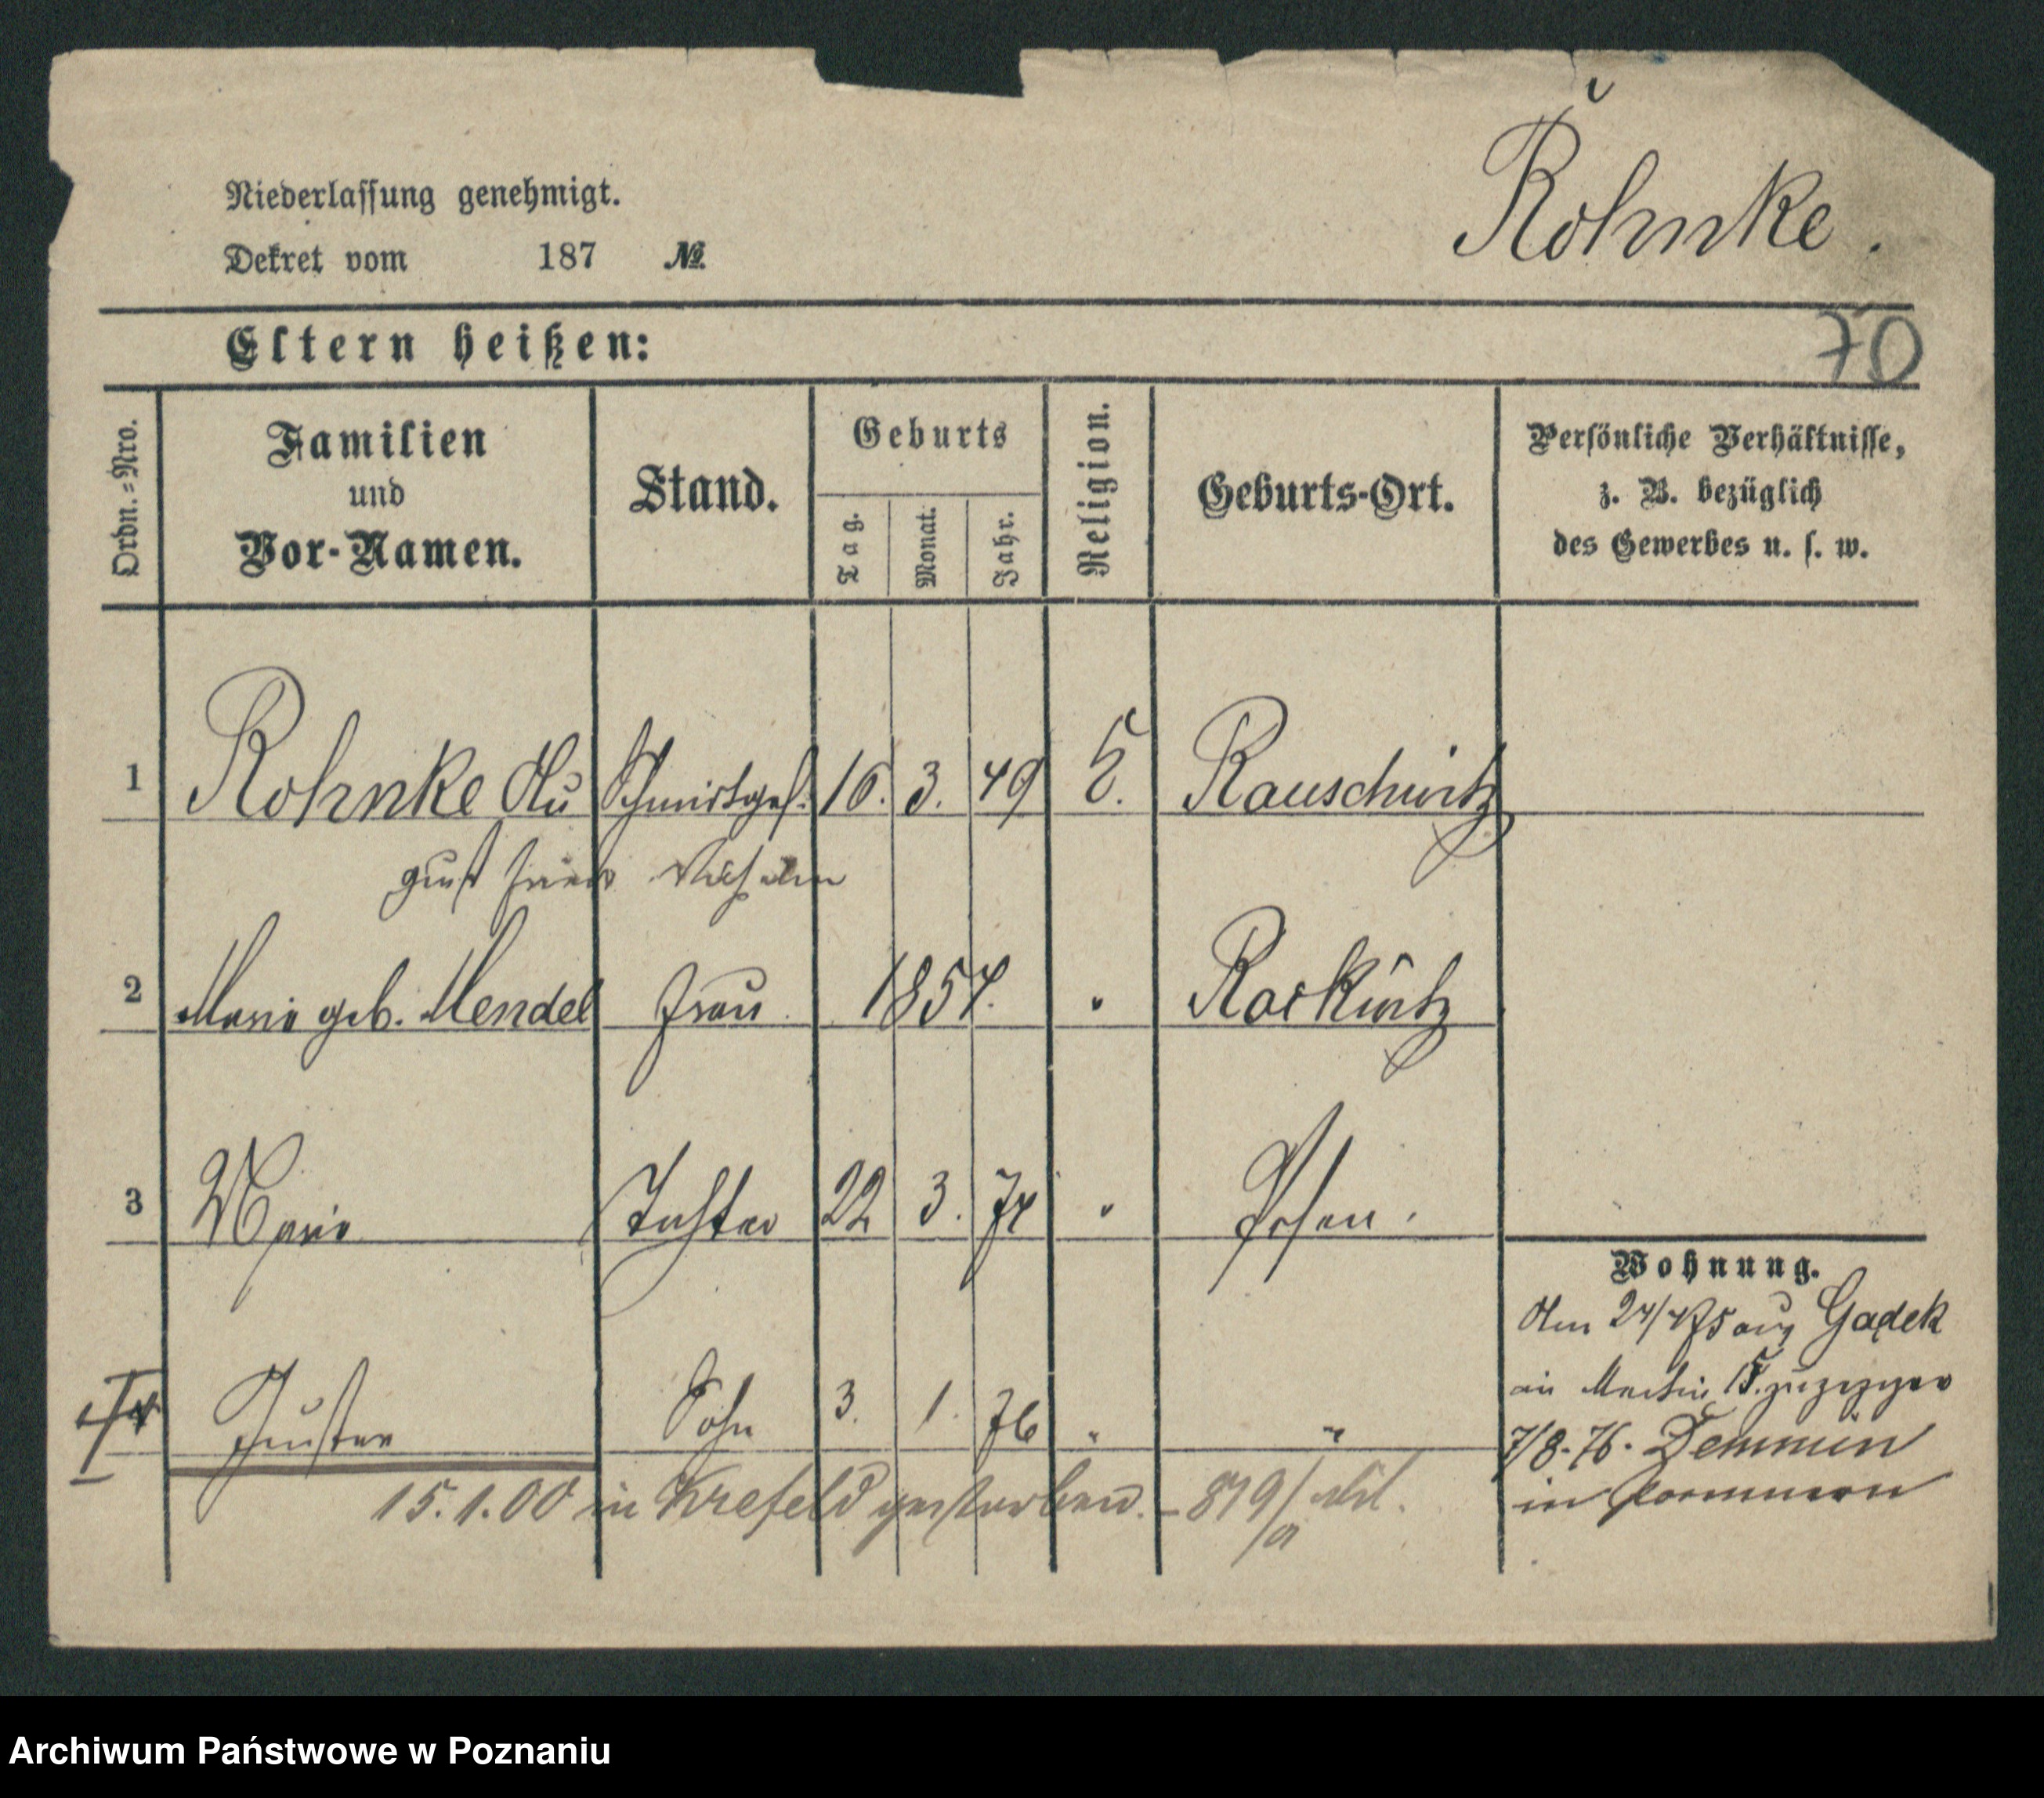 Rohnke.
Niederlassung genehmigt.
Dekret vom 187 №
Eltern heißen:
70
Ordn.-Nro.
Familien
und
Vor-Namen.
Stand.
Geburts
Tag.
Monat.
Jahr.
Religion.
Geburts-Ort.
Persönliche Verhältnisse,
z. B. bezüglich
des Gewerbes u. s. w.
1 Rohnke Au Schmidtges. 16. 3. 49 E. Rauschwitz
gust Wilhelm
2 Marie geb. Mendel Frau 1854. "
3 Marie Tochter 22 3. 74 " Posen.
Gustav Sohn 3. 1. 76 " "
15.1.00 in Krefeld gestorben. - 819/
Wohnung.
Am 24/4 75 aus Gadek
Martin 15. zugezogen
7/8.76. Demmin
in Pommern
Archiwum Państwowe w Poznaniu